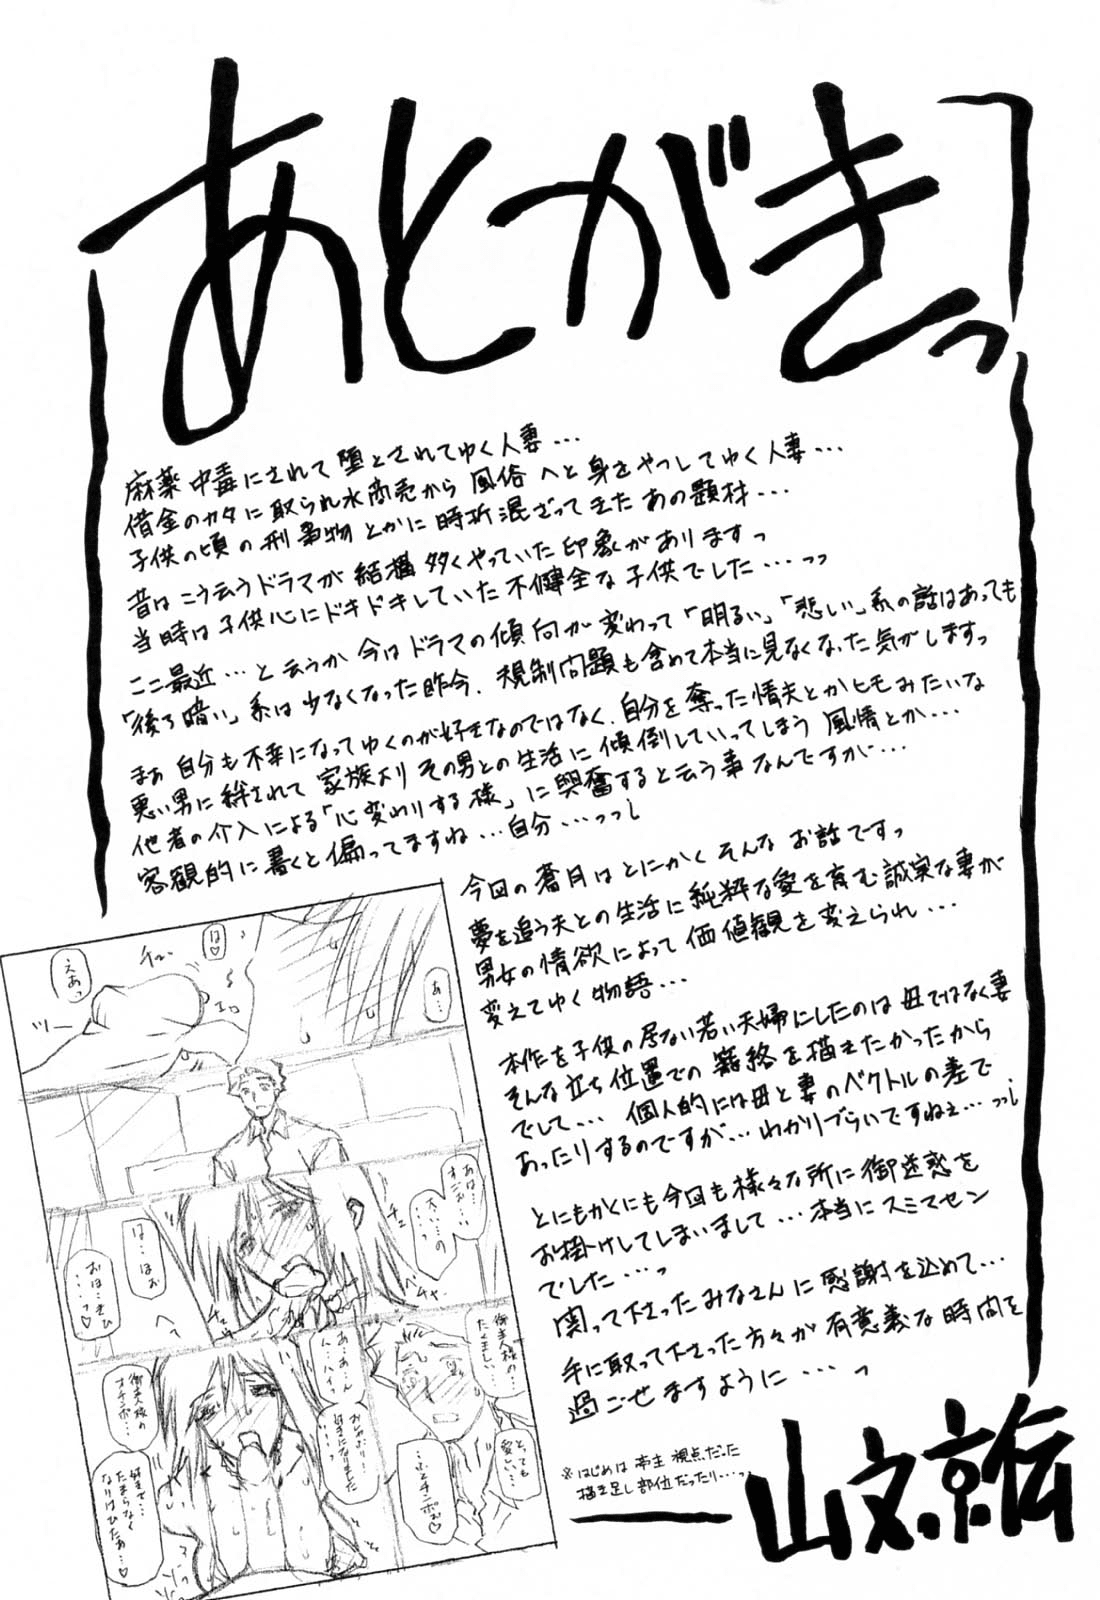 あとがきっ
麻薬中毒にされて堕とされてゆく人妻・・・
借金のカタに取られ水商売から風俗へと身をやつしてゆく人妻・・・
子供の頃の刑事物とかに時折混ざってきたあの題材・・・
昔はこう云うドラマが結構多くやっていた印象がありますっ
当時は子供心にドキドキしていた不健全な子供でした・・・っっ
ここ最近・・・と云うか今はドラマの傾向が変わって「明るい」「悲しい」系の話はあっても
「後ろ暗い」系は少なくなった昨今、規制問題も含めて本当に見なくなった気がしますっ
まぁ自分も不幸になってゆくのが好きなのではなく、自分を奪った情夫とかヒモみたいな
悪い男に絆されて家族よりその男との生活に傾倒していってしまう風情とか・・・
他者の介入による「心変わりする様」に興奮すると云う事なんですが・・・
客観的に書くと偏ってますね・・・自分・・・っっし
今回の蒼月はとにかくそんなお話ですっ
夢を追う夫との生活に純粋な愛を育む誠実な妻が
男女の情欲によって価値観を変えられ・・・
変えてゆく物語・・・
本作を子供の居ない若い夫婦にしたのは母ではなく妻
そんな立ち位置での寝物を描きたかったから
でして・・・個人的には母と妻のベクトルの差で
あったりするのですが・・・わかりづらいですねぇ・・・っっし
とにもかくにも今回も様々な所に御迷惑を
お掛けしてしまいまして・・・本当にスミマセン
でした・・・っ
関って下さったみなさんに感謝を込めて・・・
手に取って下さった方々が有意義な時間を
過ごせますように・・・っ
※はじめは亭主視点だった
描き足し部位だったり・・・っ
山文京伝
あ…
は♡
えあっ
チュ…
ツー
あは…
すごおい
太い…の
…っ
は…はお
おは…きひ
…っ♡
チュ
チャ
御主人様の…
たくましい…
とっても
愛しい…
…おチンポぉ♡
あ…あ…ん
ん…ハイっ
おしゃぶり…
好きになりました
…っ
御主人様の
オチンポ…
好きで…
たまらなく
なりけひたぁ…♡